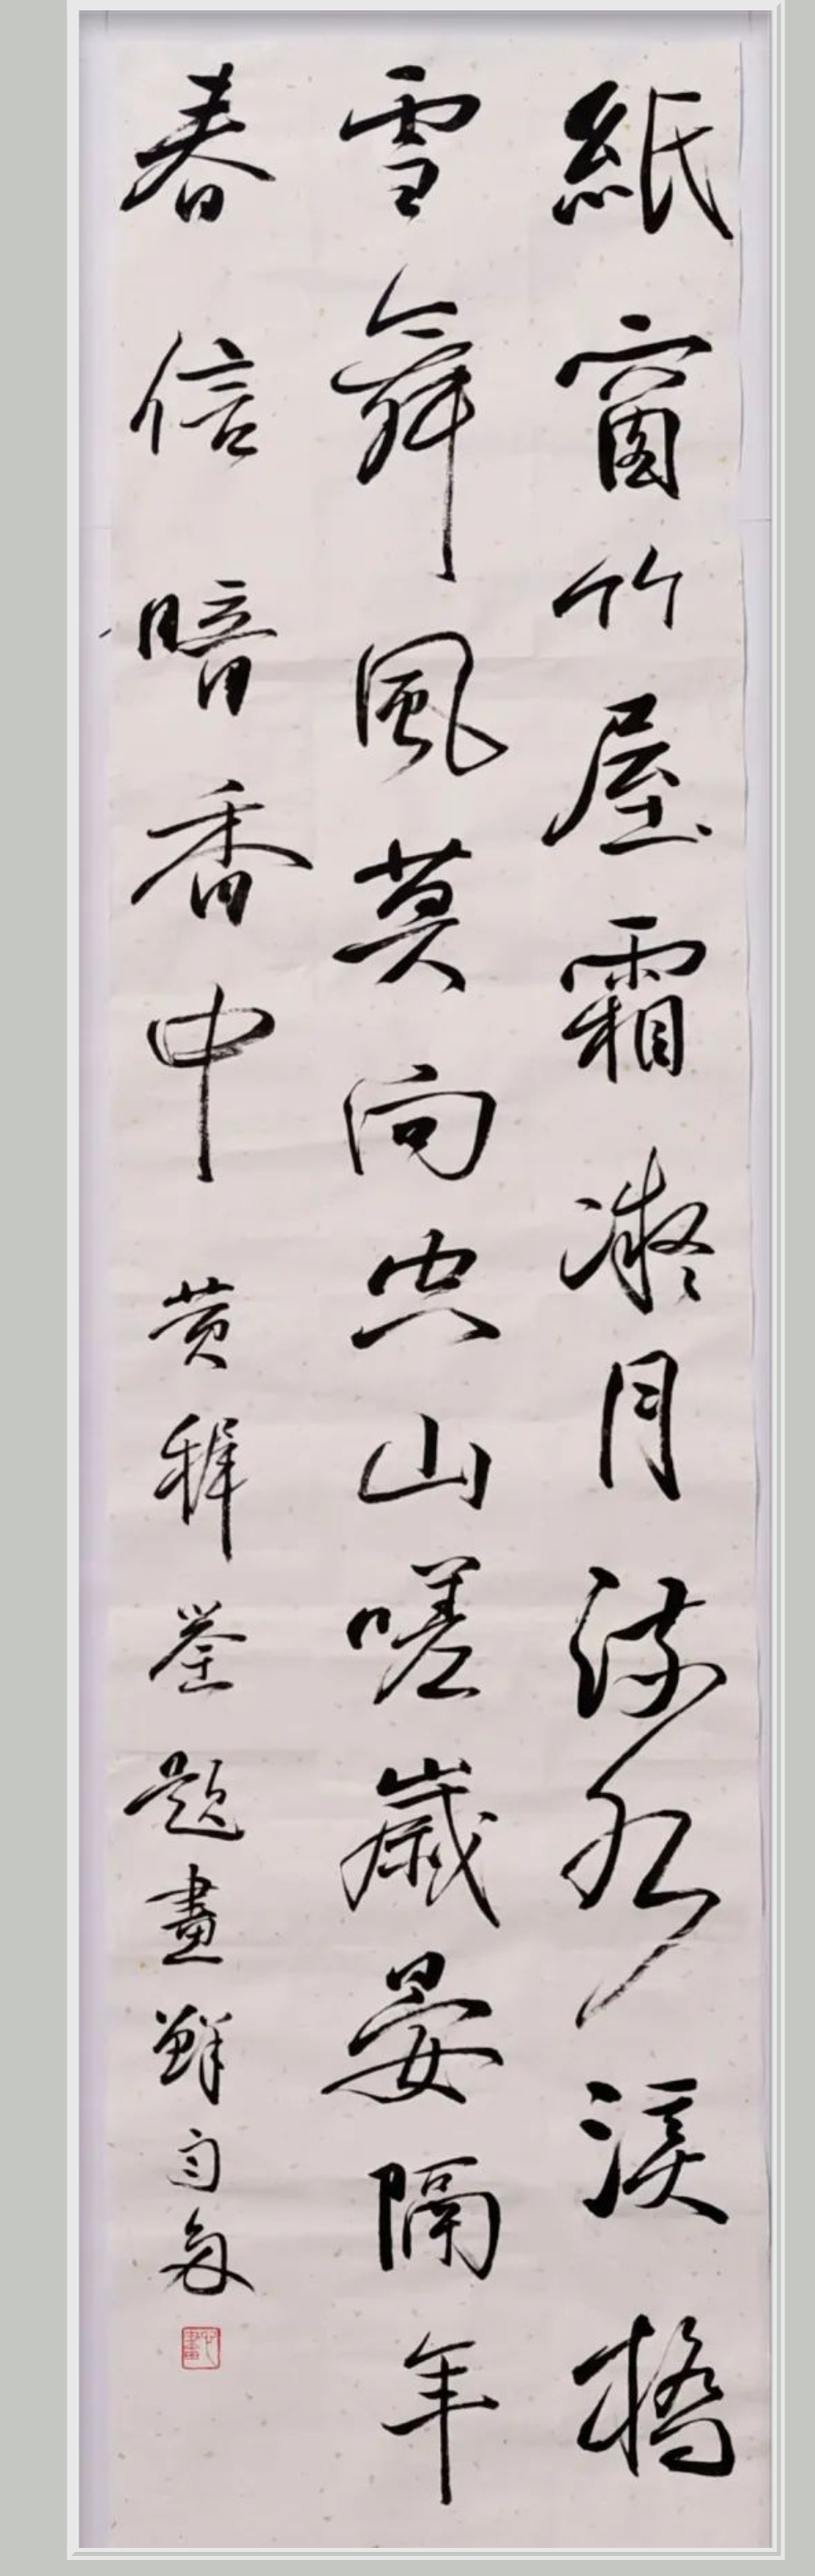 紙窗竹屋霜凝月流水溪橋
雪舞風莫向空山嗟歲晏隔年
春信暗香中 黄稚荃題畫鮮自南